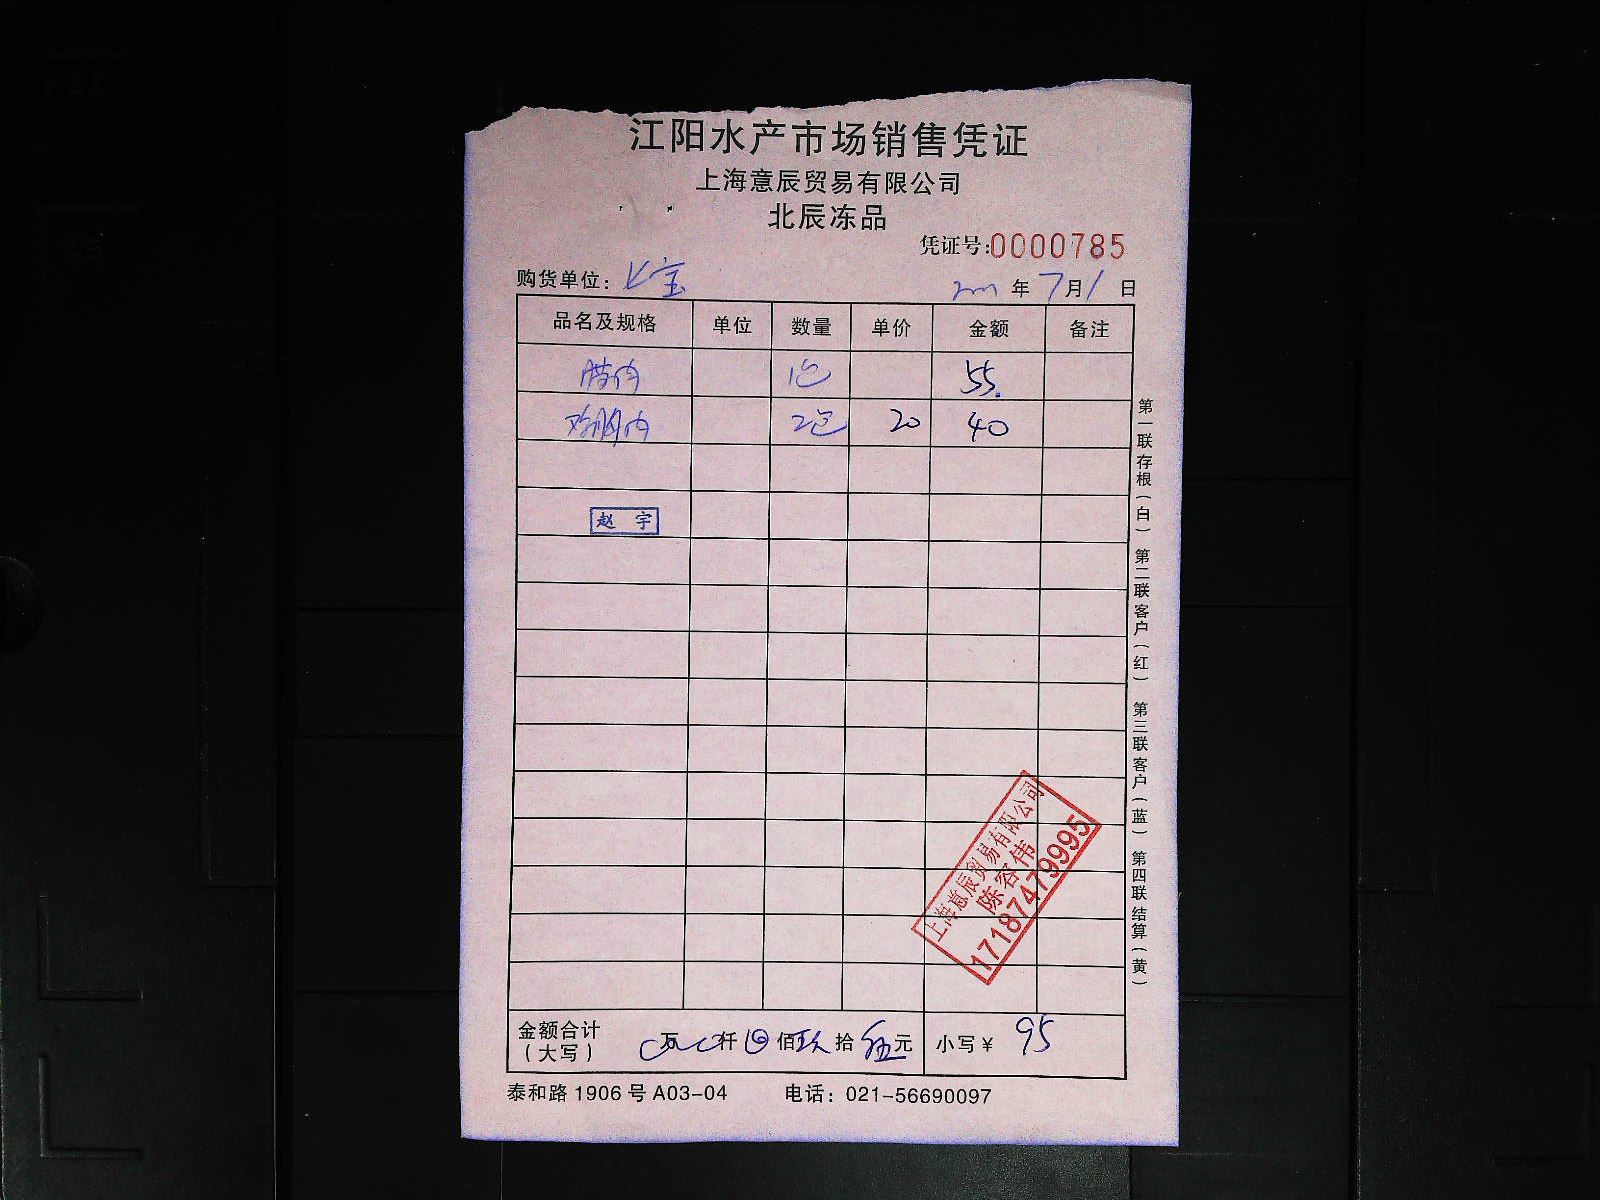 江阳水产市场销售凭证
上海意辰贸易有限公司
北辰冻品
凭证号:0000785
购货单位: 上宝 年 7月1日
品名及规格 单位 数量 单价 金额 备注
肉 1包 55.
鸡胸肉 2包 20 40
赵 宇
上海意辰贸易有限公司
陈容伟
17187479995
第一联存根(白) 第二联客户(红) 第三联客户(蓝) 第四联结算(黄)
金额合计 万 仟 佰玖拾伍元 小写¥ 95
(大写)
泰和路1906号A03-04 电话: 021-56690097